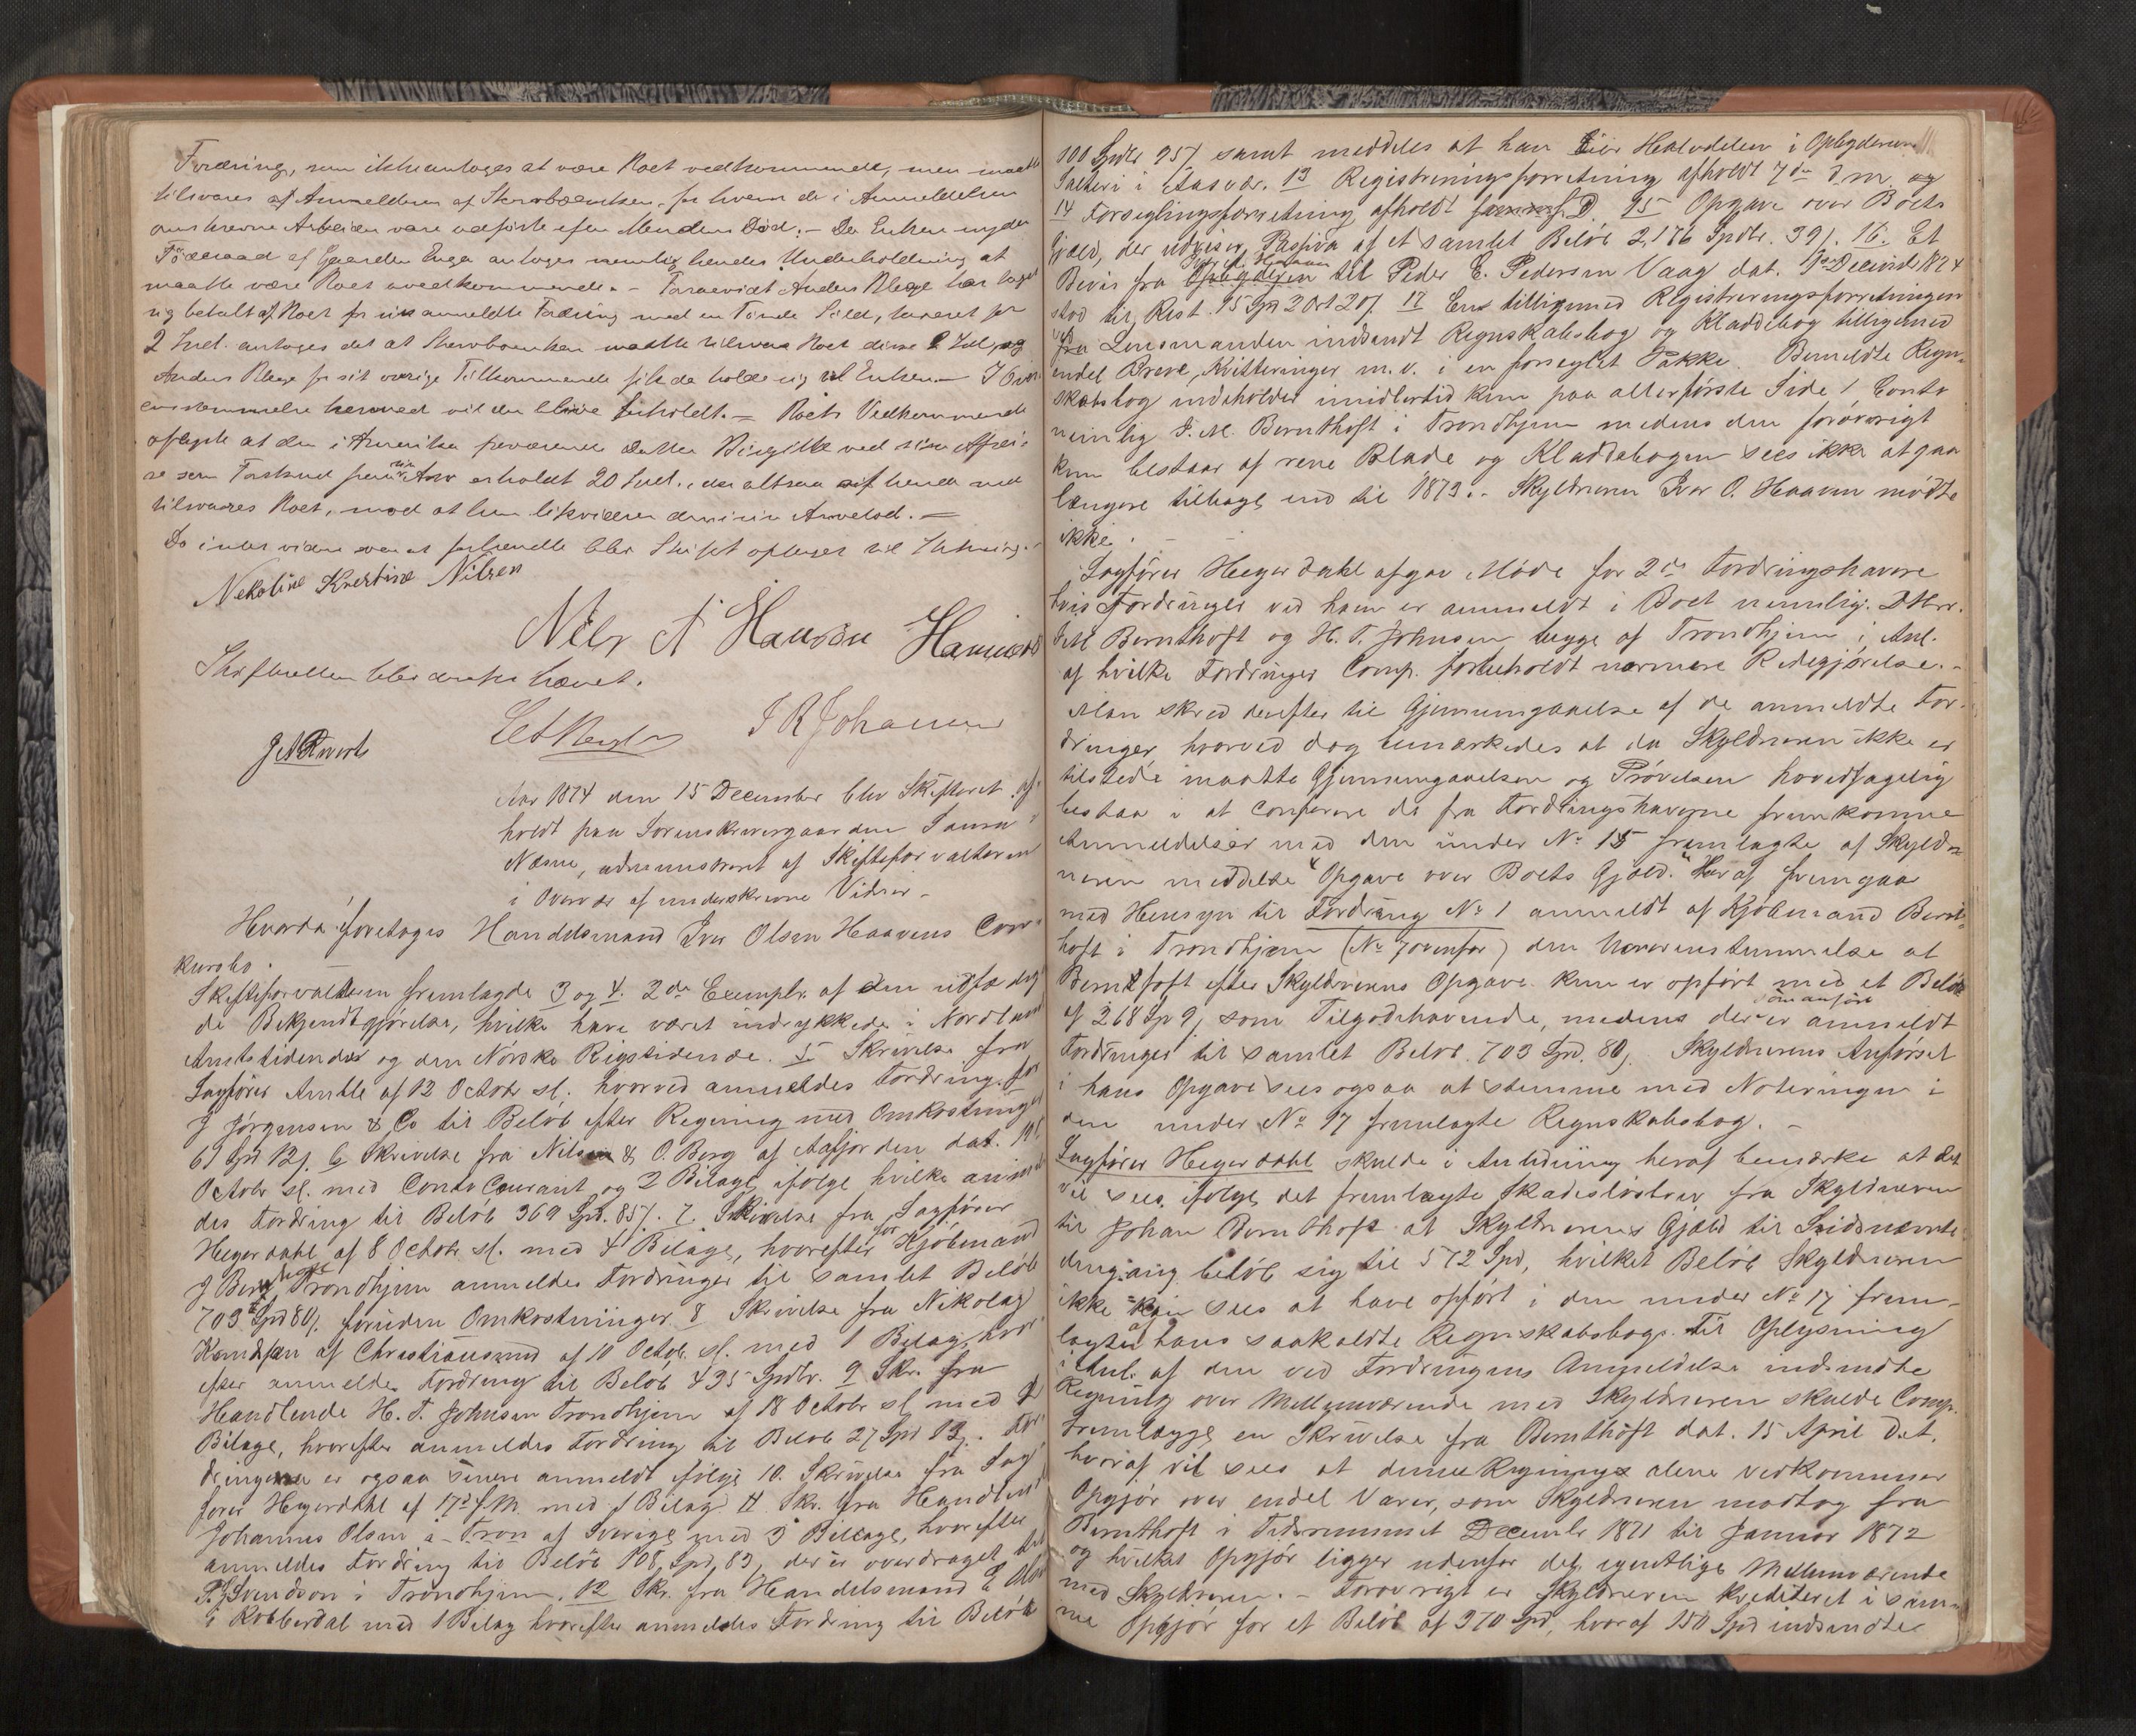 Fordring, som ikke antoges at være Boet vedkommende, men maatte
tilsvares af Anmelderen af Sterboenken, for hvem de i Anmeldelsen
omskrevne Arbeider vare udførte efter Mandens Død. - Da Enken nyder
Föderaad af Gaarden Enga antoges nemlig hendes Underholdning at
maatte være Boet uvedkommende. - Forsaavidt Anders Klege har taget
sig betalt af Boet for sin anmeldte Fordring med en Tønde Sild, taxeret for
2 Spd. antoges det at Sterboenken maatte tilsvare Boet disse 2 Spd, og
Anders Klege for sit øvrige Tilkommende fik da holde sig til Enken. - I Over-
ensstemmelse hermed vil der blive forholdt. - Boets Vedkommende
oplyste at den i Amerika fraværende Datter Birgitte ved sin Afrei-
se som Forskud paa sin Arv erholdt 20 Spd., der altsaa af hende maa
tilsvares Boet, mod at hun likviderer dem i sin Arvelod. -
Da intet videre var at forhandle blev Skiftet optaget til Slutning. -
Nekoline Kristine Nilsen
Nils A Hansen
Skifteretten blev derefter hævet.
J R Johansen
Aar 1874 den 15 December blev Skifteret af-
holdt paa Sorenskrivergaarden Sauren i
Næsne, administreret af Skifteforvalteren
i Overvær af underskrevne Vidner -
Hvorda foretoges Handelsmand Iver Olsen Haavens Con-
kursbo. -
Skifteforvalteren fremlagde 3 og 4. 2de Exemplr. af den udfærdige-
de Bekjendtgjørelse, hvilke have været indrykkede i Nordlands
Amtstidende og den Norske Rigstidende. 5 Skrivelse fra
Sagfører Amble af 12 Octobr sl. hvorved anmeldes Fordring for
J Jørgensen & Co til Beløb efter Regning med Omkostninger
61 Spd 12 s. 6 Skrivelse fra Nilsen & O. Berg af Aafjorden dat. 10de
Octobr sl. med Conto Courant og 2 Bilage, ifølge hvilke anmel-
des Fordring til Beløb 369 Spd. 85 s. 7. Skrivelse fra Sagfører
Hegerdahl af 8 Octobr sl. med 4 Bilage, hvorefter for Kjøbmand
J Bernthoft Trondhjem anmeldes Fordringer til samlet Beløb
703 Spd 80 s. foruden Omkostninger. 8 Skrivelse fra Nikolay
Knudtzen af Christiansund af 10 Octob. sl. med 1 Bilag, hvor-
efter anmeldes Fordring til Beløb 435 Spdlr. 9 Skr. fra
Handlende H. T. Johnsen Trondhjem af 18 Octobr sl med 2
Bilage, hvorefter anmeldes Fordring til Beløb 27 Spd 13 s. For-
dringerne er ogsaa senere anmeldt ifølge 10. Skrivelse fra Sag-
fører Hegerdahl af 17de f. M. med 1 Bilag. 11 Skr. fra Handlende
Johannes Olsen a Tron af Sverige med 3 Bilage, hvorefter
anmeldes Fordring til Beløb 108 Spd. 83, der er overdraget til
P. Svendson i Trondhjem. 12 Skr. fra Handelsmand E Olsen
i Kobberdal med 1 Bilag hvorefter anmeldes Fordring til Beløb
100 Spdlr 95 s. samt meddeles at han eier Halvdelen i Opbyderens
Salteri i Aasvær. 13 Registreringsforretning afholdt 7de d. m. og
14 Forseglingsforretning afholdt s. D. 15 Opgave over Boets
Gjæld, der udviser Passiva af et samlet Beløb 2,176 Spdlr. 39 s. 16. Et
Bevis fra Opbyderen til Peder E. Pedersen Vaag dat. 1ste Decembr 1874
stod til Rest 15 Sp 2 Ort 20 s. 17 En tilligemed Registreringsforretningen
fra Lensmanden indsendt Regnskabsbog og Kladdebog tilligemed
endel Breve, Kvitteringer m. v. i en forseglet Pakke. Bemeldte Regn-
skabsbog indeholder imidlertid kun paa allerførste Side 1 Conto
nemlig J. M. Bernthoft i Trondhjem medens den forøvrigt
kun bestaar af rene Blade og Kladdebogen sees ikke at gaa
længere tilbage end til 1873. - Skyldneren Iver O. Haaven mødte
ikke. -
Sagfører Hegerdahl afgav Møde for 2de Fordringshavere
hvis Fordringer ved ham er anmeldt i Boet nemlig: DHrr.
J. M Bernthoft og H. T. Johnsen begge af Trondhjem, i Anl.
af hvilke Fordringer Comp. forbeholdt nærmere Redegjørelse. -
Man skred derefter til Gjennemgaaelse af de anmeldte For-
dringer, hvorved dog bemærkedes at da Skyldneren ikke er
tilstede maatte Gjennemgaaelsen og Prøvelsen hovedsagelig
bestaa i at conferere de fra Fordringshaverne fremkomne
Anmeldelser med den under No 15 fremlagte af Skyld-
neren meddelte "Opgave over Boets Gjæld." Heraf fremgaar
med Hensyn til Fordring No 1 anmeldt af Kjøbmand Bernt-
hoft i Trondhjem (No 7 ovenfor) den Uoverensstemmelse at
Bernthoft efter Skyldnerens Opgave kun er opført med et Beløb
af 268 Sp 9 s, som Tilgodehavende, medens der som anført er anmeldt
Fordringer til samlet Beløb 703 Spd. 80 s. Skyldnerens Anførsel
i hans Opgave sees ogsaa at stemme med Noteringen i
den under No 17 fremlagte Regnskabsbog. -
Sagfører Hegerdahl skulde i Anledning heraf bemærke at det
vil sees ifølge det fremlagte Skadesløsbrev fra Skyldneren
til Johan Bernthoft at Skyldnerens Gjæld til Sidstnævnte
dengang beløb sig til 572 Spd, hvilket Beløb Skyldneren
ikke kan sees at have opført i den under No 17 frem-
lagte af hans saakaldte Regnskabsbog. Til Oplysning
i Anl. af den ved Fordringens Anmeldelse indsendte
Regning over Mellemværende med Skyldneren skulde Comp.
fremlægge en Skrivelse fra Bernthoft dat. 15 April d. A.
hvoraf vil sees at denne Regning alene vedkommer
Opgjør over endel Varer, som Skyldneren modtog fra
Bernthoft i Tidsrummet Decembr 1871 til Januar 1872
og hvilket Opgjør ligger udenfor det egentlige Mellemværende
med Skyldneren. - Forøvrigt er Skyldneren krediteret i sam-
me Opgjør for et Beløb af 370 Spd, hvoraf 150 Spd indsendtes